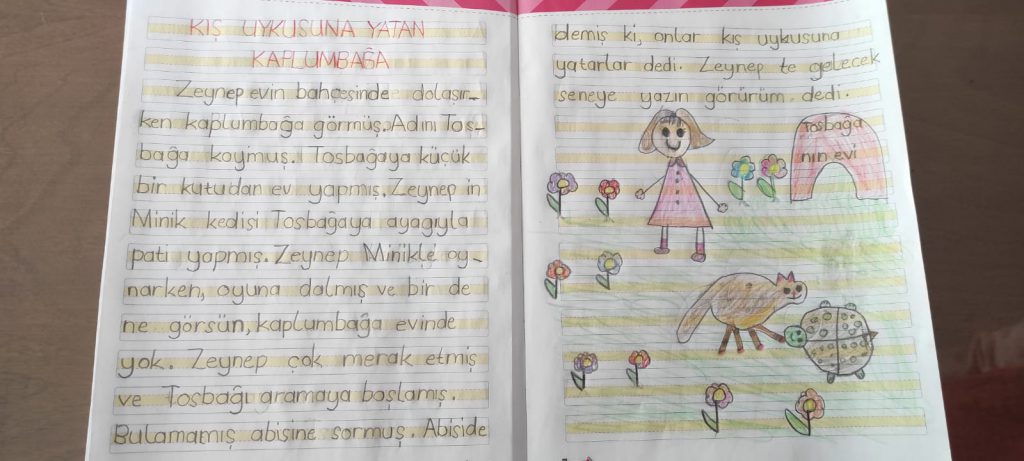 KIŞ UYKUSUNA YATAN
KAPLUMBAĞA
Zeynep evin bahçesinde dolaşır-
ken kaplumbağa görmüş. Adını Tos-
bağa koymuş. Tosbağaya küçük
bir kutudan ev yapmış. Zeynep in
Minik kedisi Tosbağaya ayagıyla
patı yapmış. Zeynep Minikle oy-
narken, oyuna dalmış ve bir de
ne görsün, kaplumbağa evinde
yok. Zeynep çok merak etmiş
ve Tosbağı aramaya başlamış.
Bulamamış abisine sormuş. Abiside
demiş ki, onlar kış uykusuna
yatarlar dedi. Zeynep te gelecek
seneye yazın görürüm. dedi.
Tosbağa
nın evi